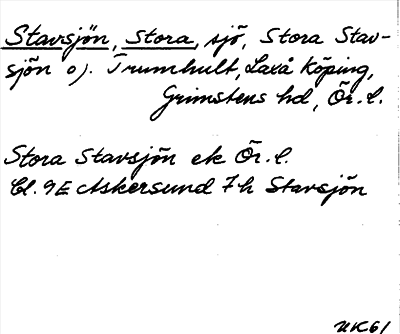 Stavsjön, Stora, sjö, Stora Stav-
sjön o). Trumhult, Laxå Köping,
Grimstens hd, Ör. l.
Stora Stavsjön ek Ör. l.
Bl. 9E Askersund 7h Stavsjön
UK61